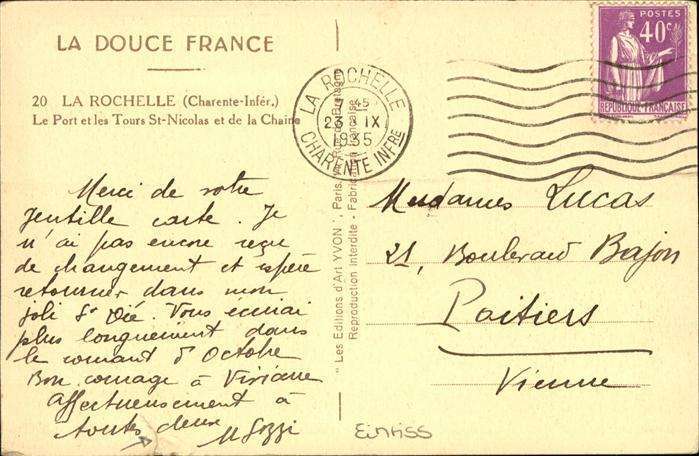 LA DOUCE FRANCE
20 LA ROCHELLE (Charente-Infér.)
Le Port et les Tours St-Nicolas et de la Chaine
Merci de votre
gentille carte. Je
n'ai pas encore reçu
de changement et espère
retourner dans mon
joli St Dié. Vous écrirai
plus longuement dans
le courant d'Octobre
Bon courage à Viviane
Affectueusement à
toutes deux
"Les Editions d'Art YVON", Paris.
Reproduction Interdite - Fabrication Française
LA ROCHELLE
45
23 IX
1935
CHARENTE INFRE
POSTES
40c
REPUBLIQUE FRANÇAISE
Mesdames Lucas
21, Boulevard Bajon
Poitiers
Vienne